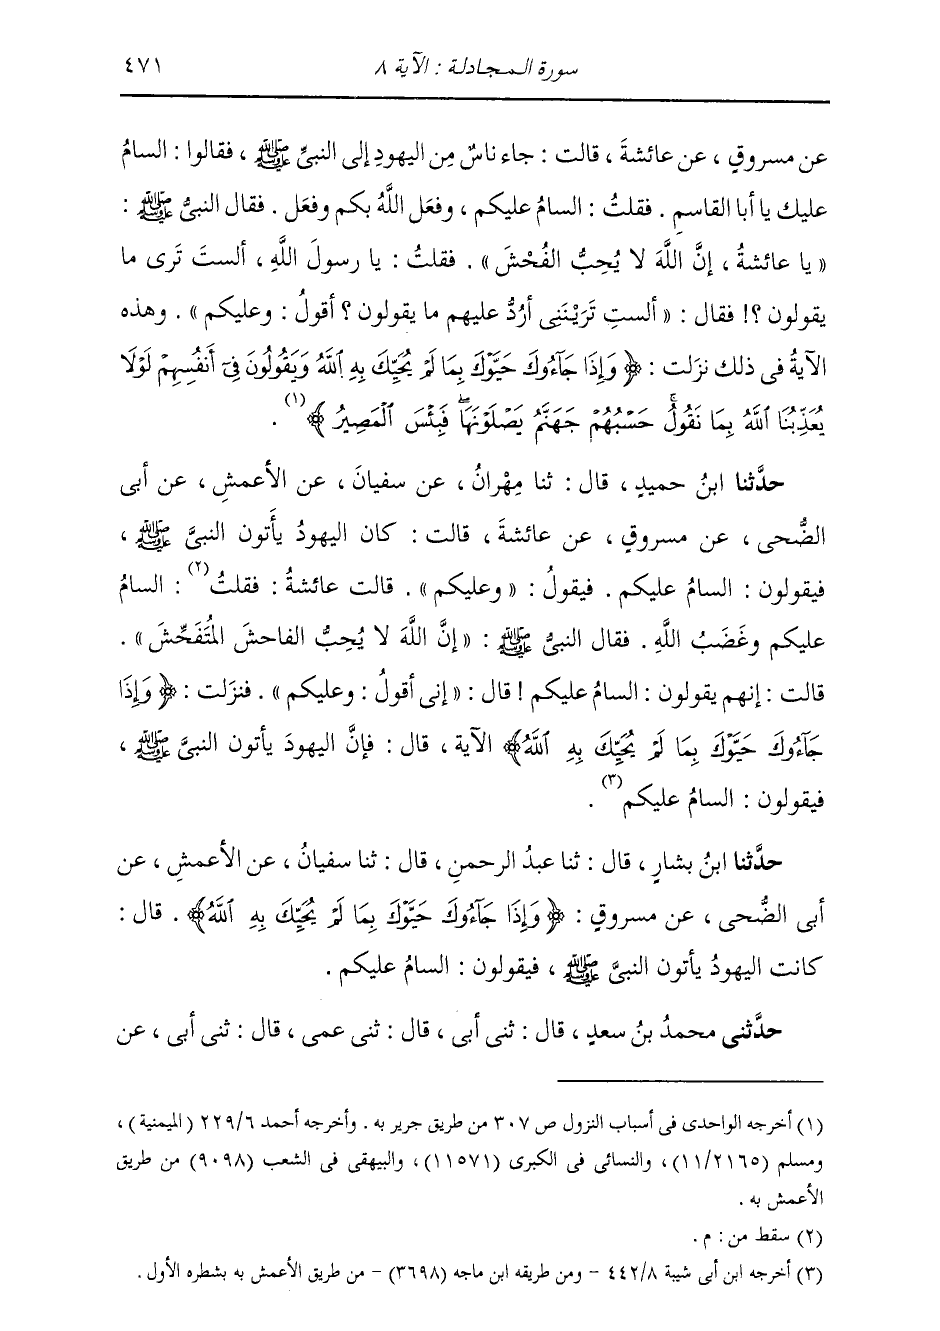 سورة المجادلة : الآية ٨ ٤٧١
عن مسروقٍ ، عن عائشةَ ، قالت : جاء ناسٌ مِن اليهودِ إلى النبيِّ ﷺ ، فقالوا : السامُ
عليك يا أبا القاسمِ . فقلتُ : السامُ عليكم ، وفعَل اللَّهُ بكم وفعَل . فقال النبيُّ ﷺ :
« يا عائشةُ ، إنَّ اللَّهَ لا يُحِبُّ الفُحْشَ » . فقلتُ : يا رسولَ اللَّهِ ، ألستَ تَرى ما
يقولون ؟! فقال : « ألستِ تَرَيْنَنى أرُدُّ عليهم ما يقولون ؟ أقولُ : وعليكم » . وهذه
الآيةُ فى ذلك نزَلت : ﴿ وَإِذَا جَآءُوكَ حَيَّوْكَ بِمَا لَمْ يُحَيِّكَ بِهِ ٱللَّهُ وَيَقُولُونَ فِىٓ أَنفُسِهِمْ لَوْلَا
يُعَذِّبُنَا ٱللَّهُ بِمَا نَقُولُۚ حَسْبُهُمْ جَهَنَّمُ يَصْلَوْنَهَاۖ فَبِئْسَ ٱلْمَصِيرُ ﴾ (١) .
حدَّثنا ابنُ حميدٍ ، قال : ثنا مِهْرانُ ، عن سفيانَ ، عن الأعمشِ ، عن أبى
الضُّحى ، عن مسروقٍ ، عن عائشةَ ، قالت : كان اليهودُ يأتون النبىَّ ﷺ ،
فيقولون : السامُ عليكم . فيقولُ : « وعليكم » . قالت عائشةُ : فقلتُ (٢) : السامُ
عليكم وغَضَبُ اللَّهِ . فقال النبىُّ ﷺ : « إنَّ اللَّهَ لا يُحِبُّ الفاحشَ المُتَفَحِّشَ » .
قالت : إنهم يقولون : السامُ عليكم ! قال : « إنى أقولُ : وعليكم » . فنزَلت : ﴿ وَإِذَا
جَآءُوكَ حَيَّوْكَ بِمَا لَمْ يُحَيِّكَ بِهِ ٱللَّهُ ﴾ الآية ، قال : فإنَّ اليهودَ يأتون النبىَّ ﷺ ،
فيقولون : السامُ عليكم (٣) .
حدَّثنا ابنُ بشارٍ ، قال : ثنا عبدُ الرحمنِ ، قال : ثنا سفيانُ ، عن الأعمشِ ، عن
أبى الضُّحى ، عن مسروقٍ : ﴿ وَإِذَا جَآءُوكَ حَيَّوْكَ بِمَا لَمْ يُحَيِّكَ بِهِ ٱللَّهُ ﴾ . قال :
كانت اليهودُ يأتون النبىَّ ﷺ ، فيقولون : السامُ عليكم .
حدَّثنى محمدُ بنُ سعدٍ ، قال : ثنى أبى ، قال : ثنى عمى ، قال : ثنى أبى ، عن
(١) أخرجه الواحدى فى أسباب النزول ص ٣٠٧ من طريق جرير به . وأخرجه أحمد ٢٢٩/٦ (الميمنية) ،
ومسلم (١١/٢١٦٥) ، والنسائى فى الكبرى (١١٥٧١) ، والبيهقى فى الشعب (٩٠٩٨) من طريق
الأعمش به .
(٢) سقط من : م .
(٣) أخرجه ابن أبى شيبة ٤٤٢/٨ - ومن طريقه ابن ماجه (٣٦٩٨) - من طريق الأعمش به بشطره الأول .